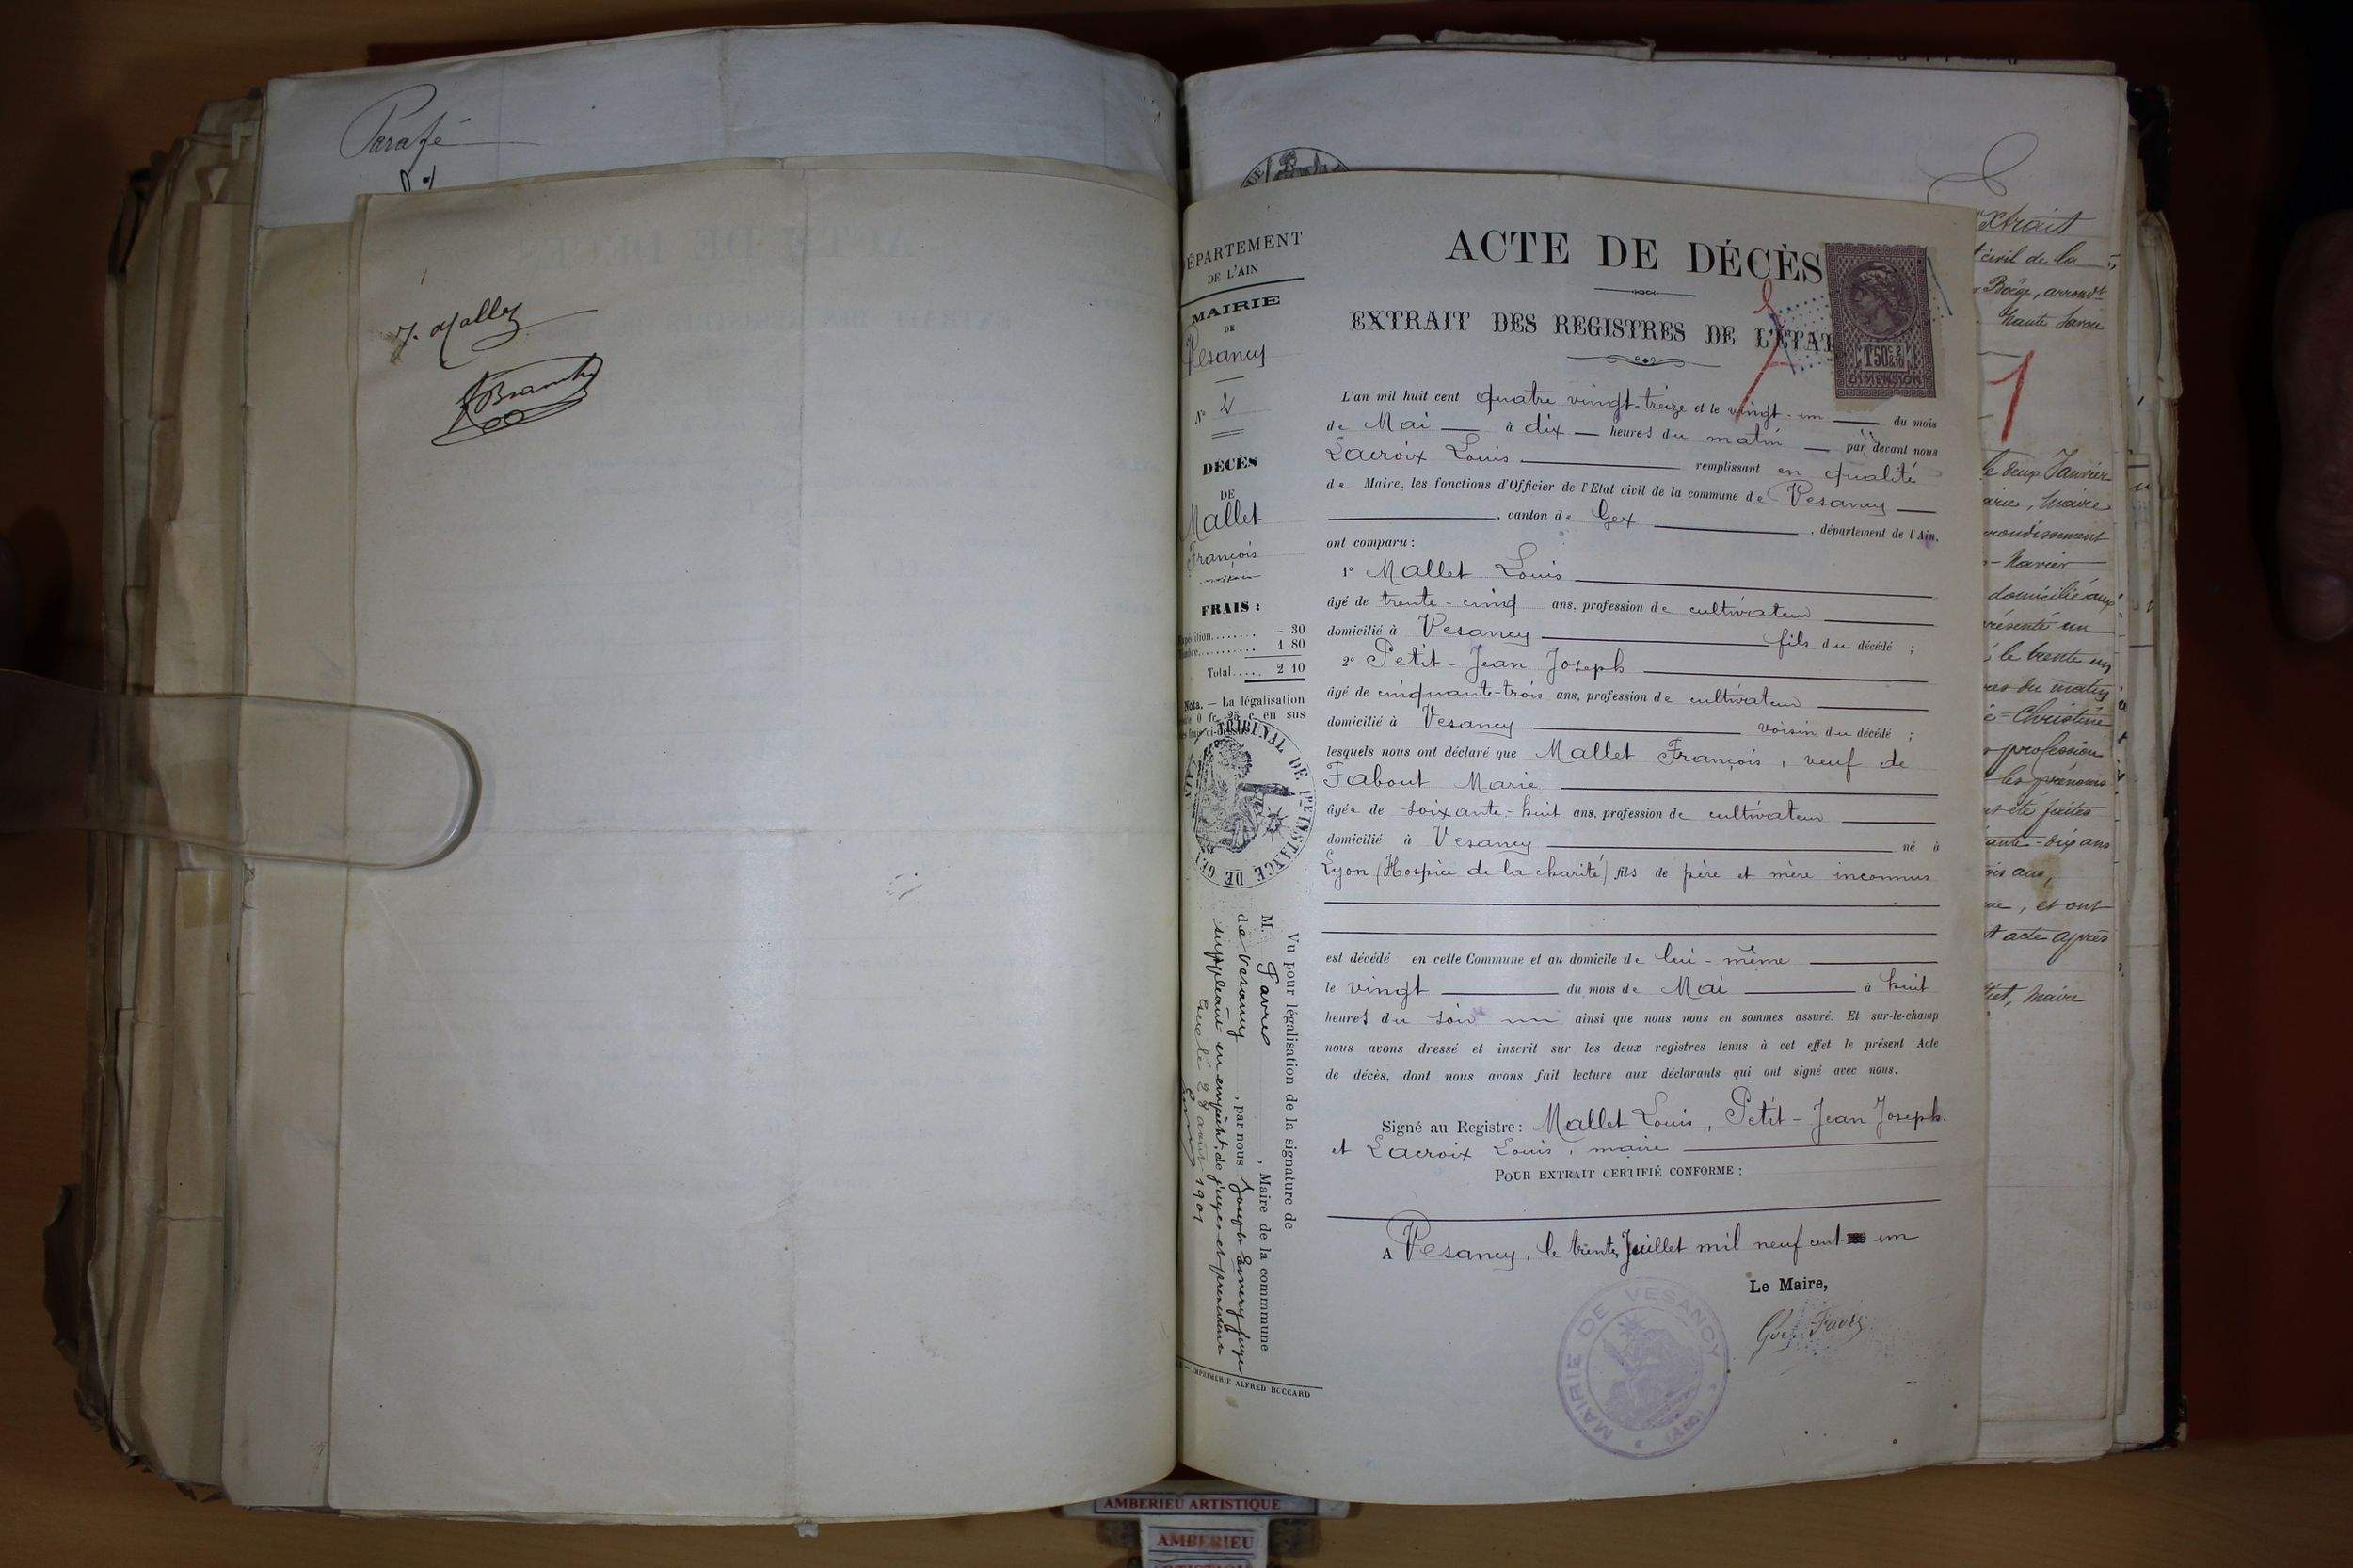 Parafé
J. Mallet
DÉPARTEMENT
DE L'AIN
MAIRIE
DE
Vesancy
N° 2
DÉCÈS
DE
Mallet
François
FRAIS :
Expédition........ – 30
Timbre.......... 1 80
Total..... 2 10
Nota. – La légalisation
en sus
TRIBUNAL DE 1RE INSTANCE DE GEX
AIN
Vu pour légalisation de la signature de
M. Favre, Maire de la commune
de Vesancy, par nous Joseph Emery juge
suppléant en empêcht. de juges et président
Gex le 28 août 1901
IMPRIMERIE ALFRED BOCCARD
ACTE DE DÉCÈS
EXTRAIT DES REGISTRES DE L'ÉTAT
1F50c 2/10
DIMENSION
L'an mil huit cent quatre vingt-treize et le vingt-un du mois
de Mai à dix heures du matin par devant nous
Lacroix Louis remplissant en qualité
de Maire, les fonctions d'Officier de l'Etat civil de la commune de Vesancy
, canton de Gex, département de l'Ain,
ont comparu :
1° Mallet Louis
âgé de trente-cinq ans, profession de cultivateur
domicilié à Vesancy fils du décédé ;
2° Petit-Jean Joseph
âgé de cinquante-trois ans, profession de cultivateur
domicilié à Vesancy voisin du décédé ;
lesquels nous ont déclaré que Mallet François, veuf de
Fabout Marie
âgée de soixante-huit ans, profession de cultivateur
domicilié à Vesancy né à
Lyon (Hospice de la charité) fils de père et mère inconnus
est décédé en cette Commune et au domicile de lui-même
le vingt du mois de Mai à huit
heures du soir ainsi que nous nous en sommes assuré. Et sur-le-champ
nous avons dressé et inscrit sur les deux registres tenus à cet effet le présent Acte
de décès, dont nous avons fait lecture aux déclarants qui ont signé avec nous.
Signé au Registre : Mallet Louis, Petit-Jean Joseph.
et Lacroix Louis, maire
POUR EXTRAIT CERTIFIÉ CONFORME :
A Vesancy, le trente Juillet mil neuf cent un
Le Maire,
Favre
MAIRIE DE VESANCY
(AIN)
Extrait
civil de la
Boëge, arrondt
Haute Savoie
1
le deux Janvier
Maire
domicilié aux
présenté un
le trente un
du matin
Christine
profession
les prénoms
été faites
ans,
et ont
acte après
Maire
AMBERIEU ARTISTIQUE
AMBERIEU